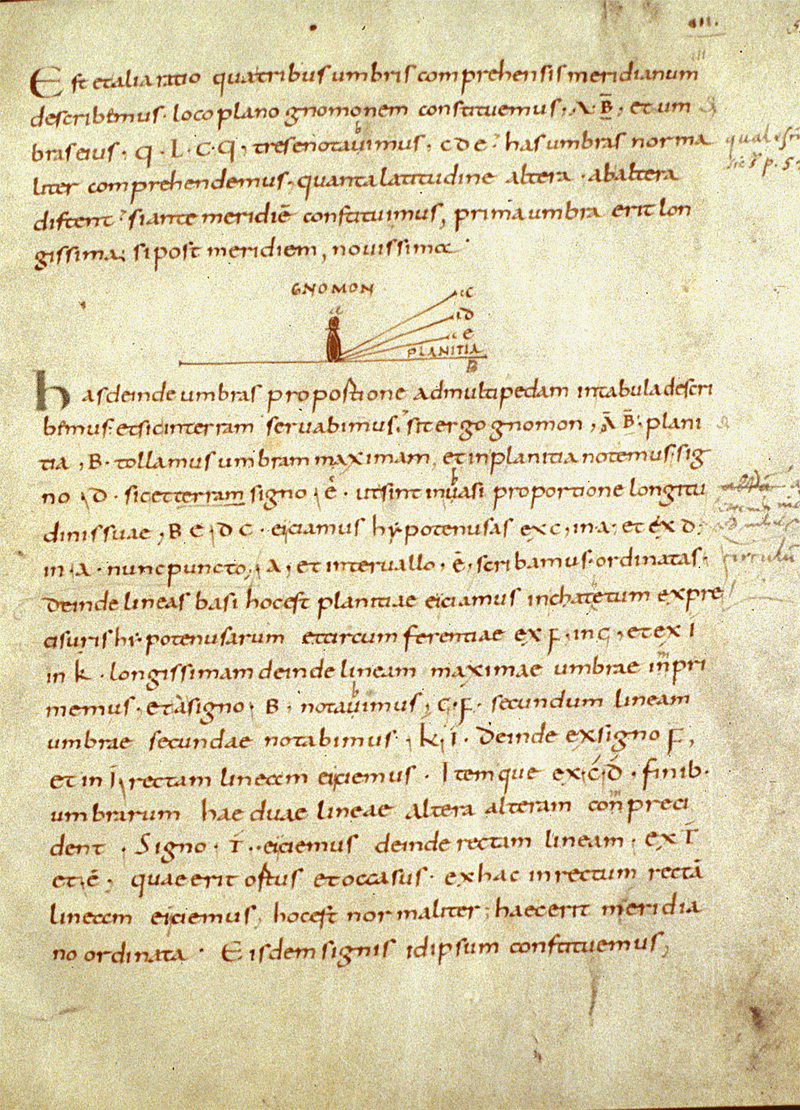 Est et alia ratio qua tribus umbris comprehensis meridianum
describemus · loco plano gnomonem constituemus, A B̄, et um
bras eius, q · L · C · Q, tres enotauimus, c d e · has umbras norma
liter comprehendemus · quanta latitudine altera · ab altera
distent · si ante meridiē constituimus, prima umbra erit lon
gissima; si post meridiem, nouissima
GNOMON
C
D
E
PLANITIA
B
has deinde umbras proportione ad multipedam in tabula descri
bēmus · et sic in terram seruabimus, sit ergo gnomon, Ā B̄ · plani
tia, B · tollamus umbram maximam, et in planitia notemus sig
no, D · sic et terram signo, ē · ut sint in uasi proportione longitu
dinis suae, B E, D C · eiciamus hypotenusas ex c, in a, et ex D,
in · A · nunc puncto, A, et interuallo, ē, scribamus · ordinatas ·
deinde lineas basi hoc est planitiae eiciamus in chatetum ex pre
cisuris hypotenusarum et circumferentiae ex F, in G, et ex I
in k · longissimam deinde lineam maximae umbrae inpri
memus · et a signo · B · notauimus, G · F · secundum lineam
umbrae secundae notabimus · k, i · Deinde ex signo F,
et in I, rectam lineam eiciemus · Item que ex, C, D, · finib·
umbrarum hae duae lineae altera alteram conpreci
dent · Signo · T · eiciemus deinde rectam lineam, ex T
et · ē, quae erit ortus et occasus · ex hac in rectum rectā
lineam eiciemus, hoc est normaliter; haec erit meridia
no ordinata · Eisdem signis id ipsum constituemus,